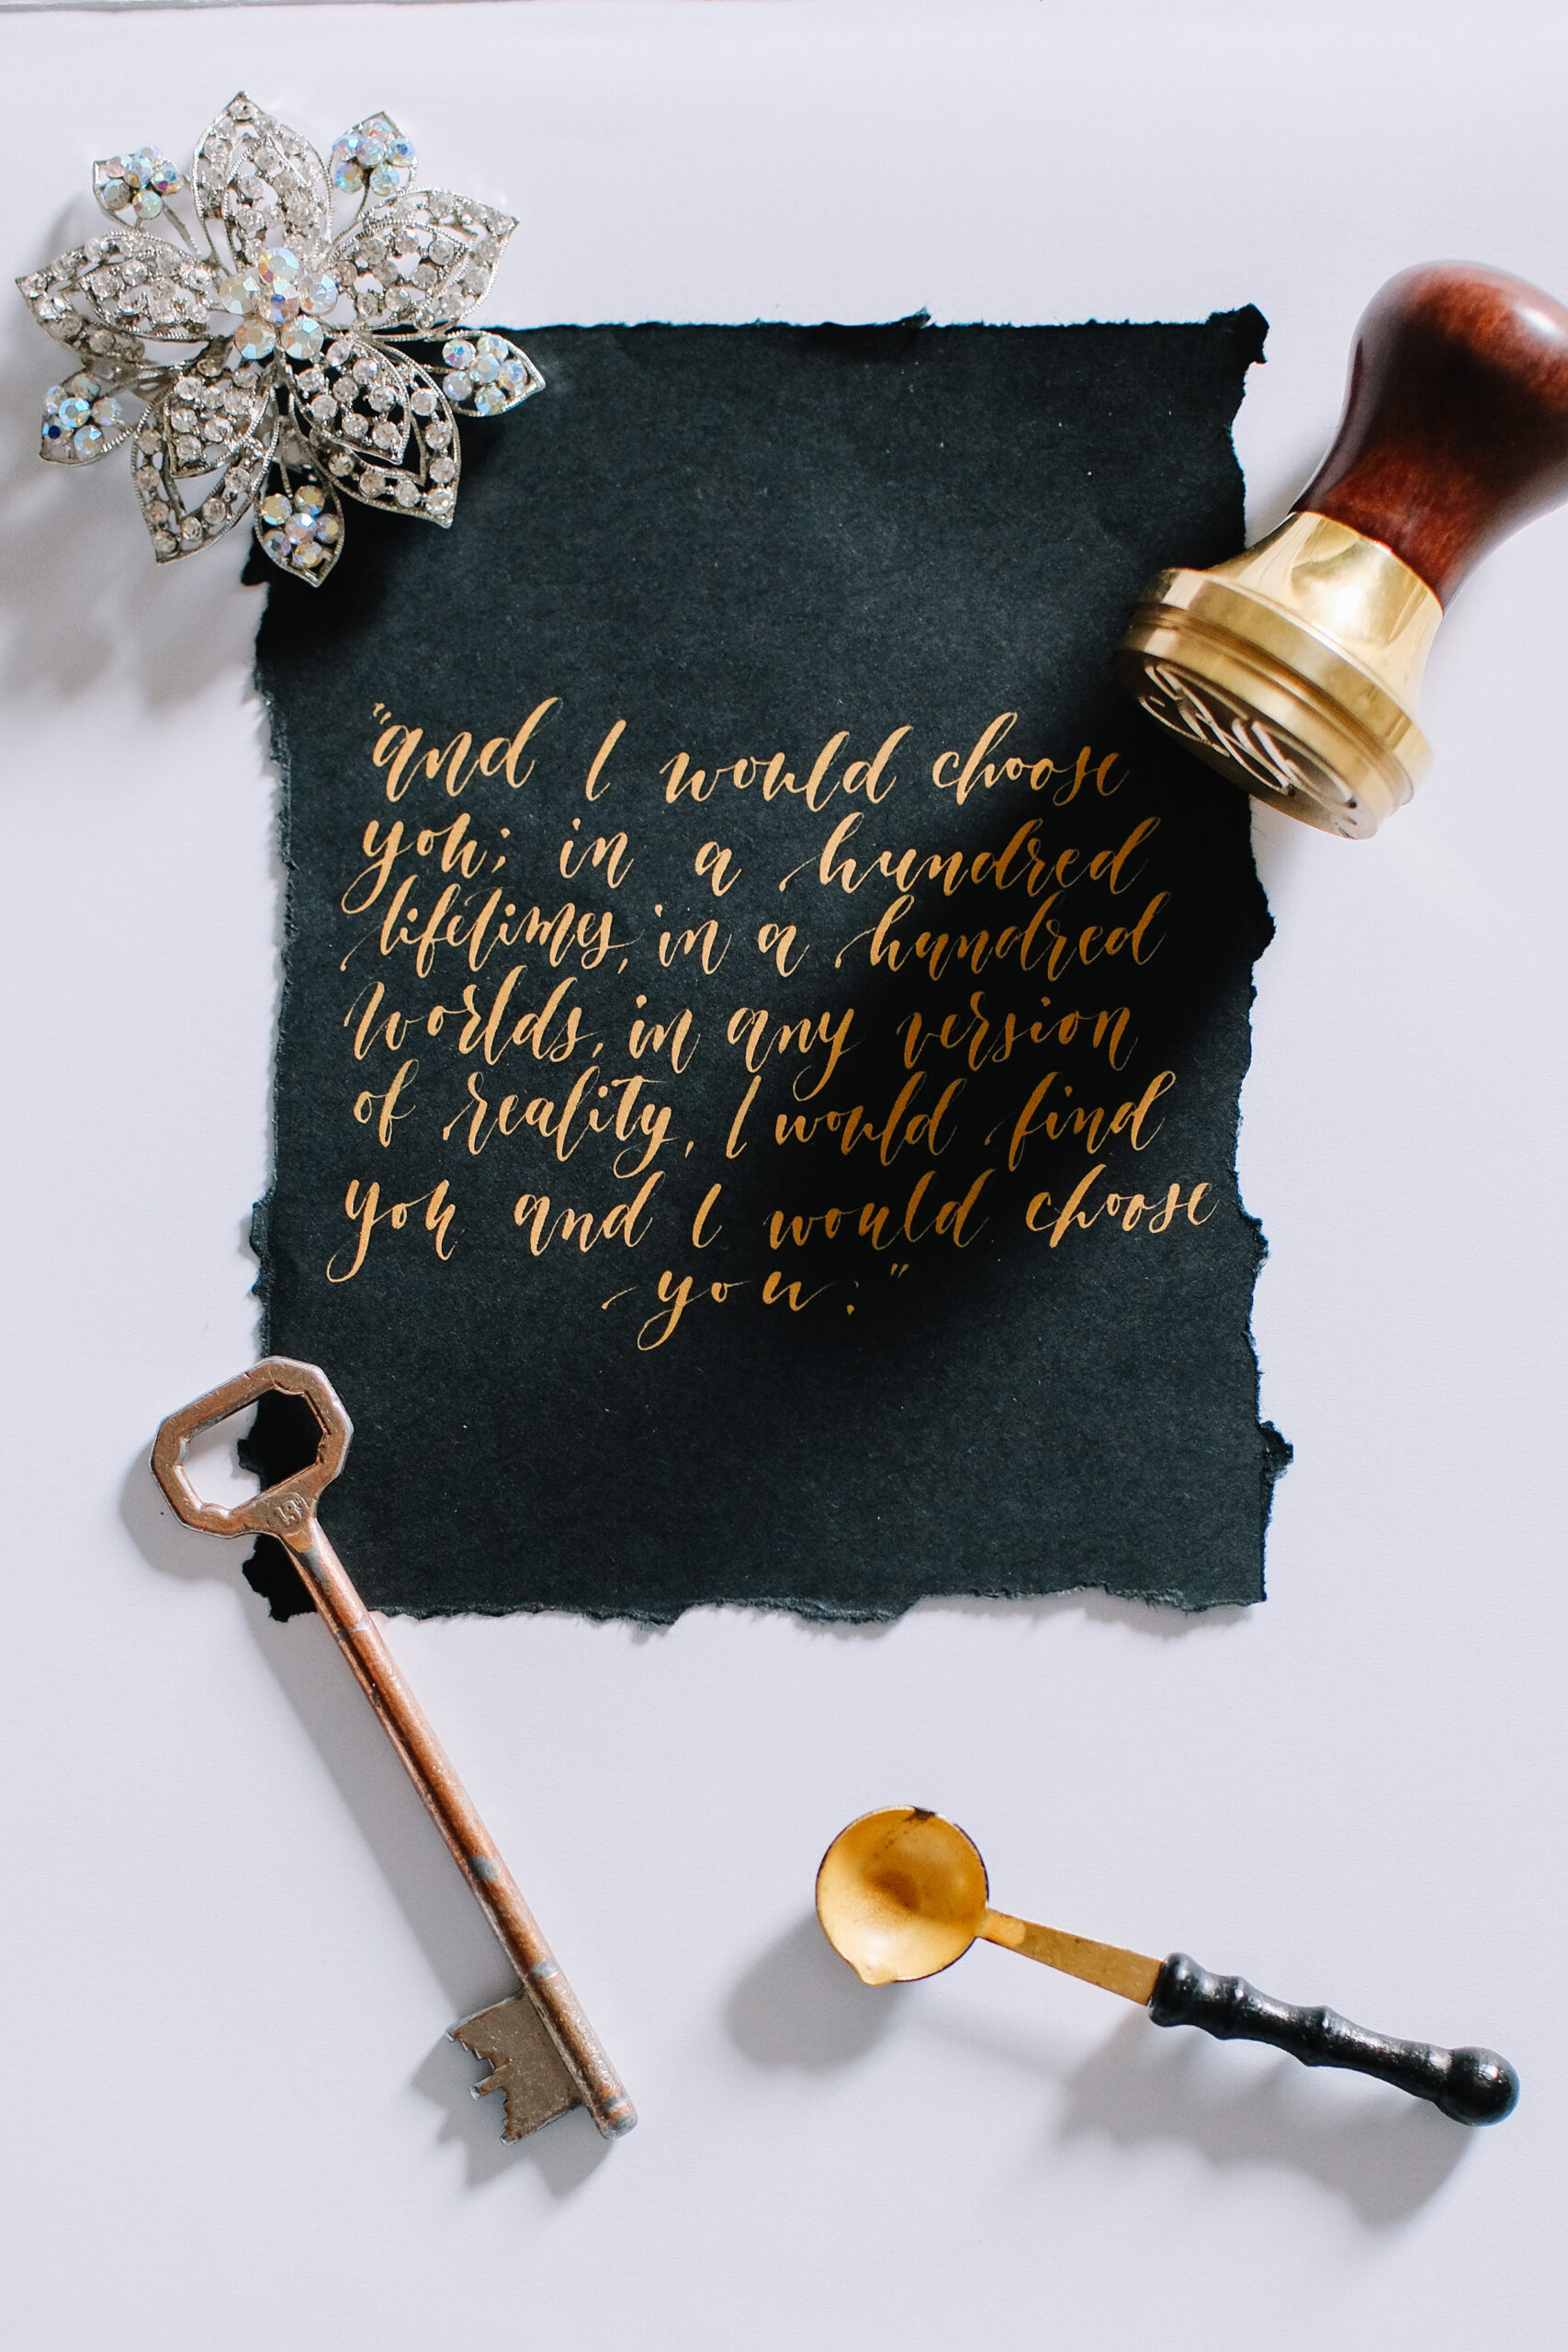 "and I would choose
you; in a hundred
lifetimes, in a hundred
worlds, in any version
of reality, I would find
you and I would choose
you."